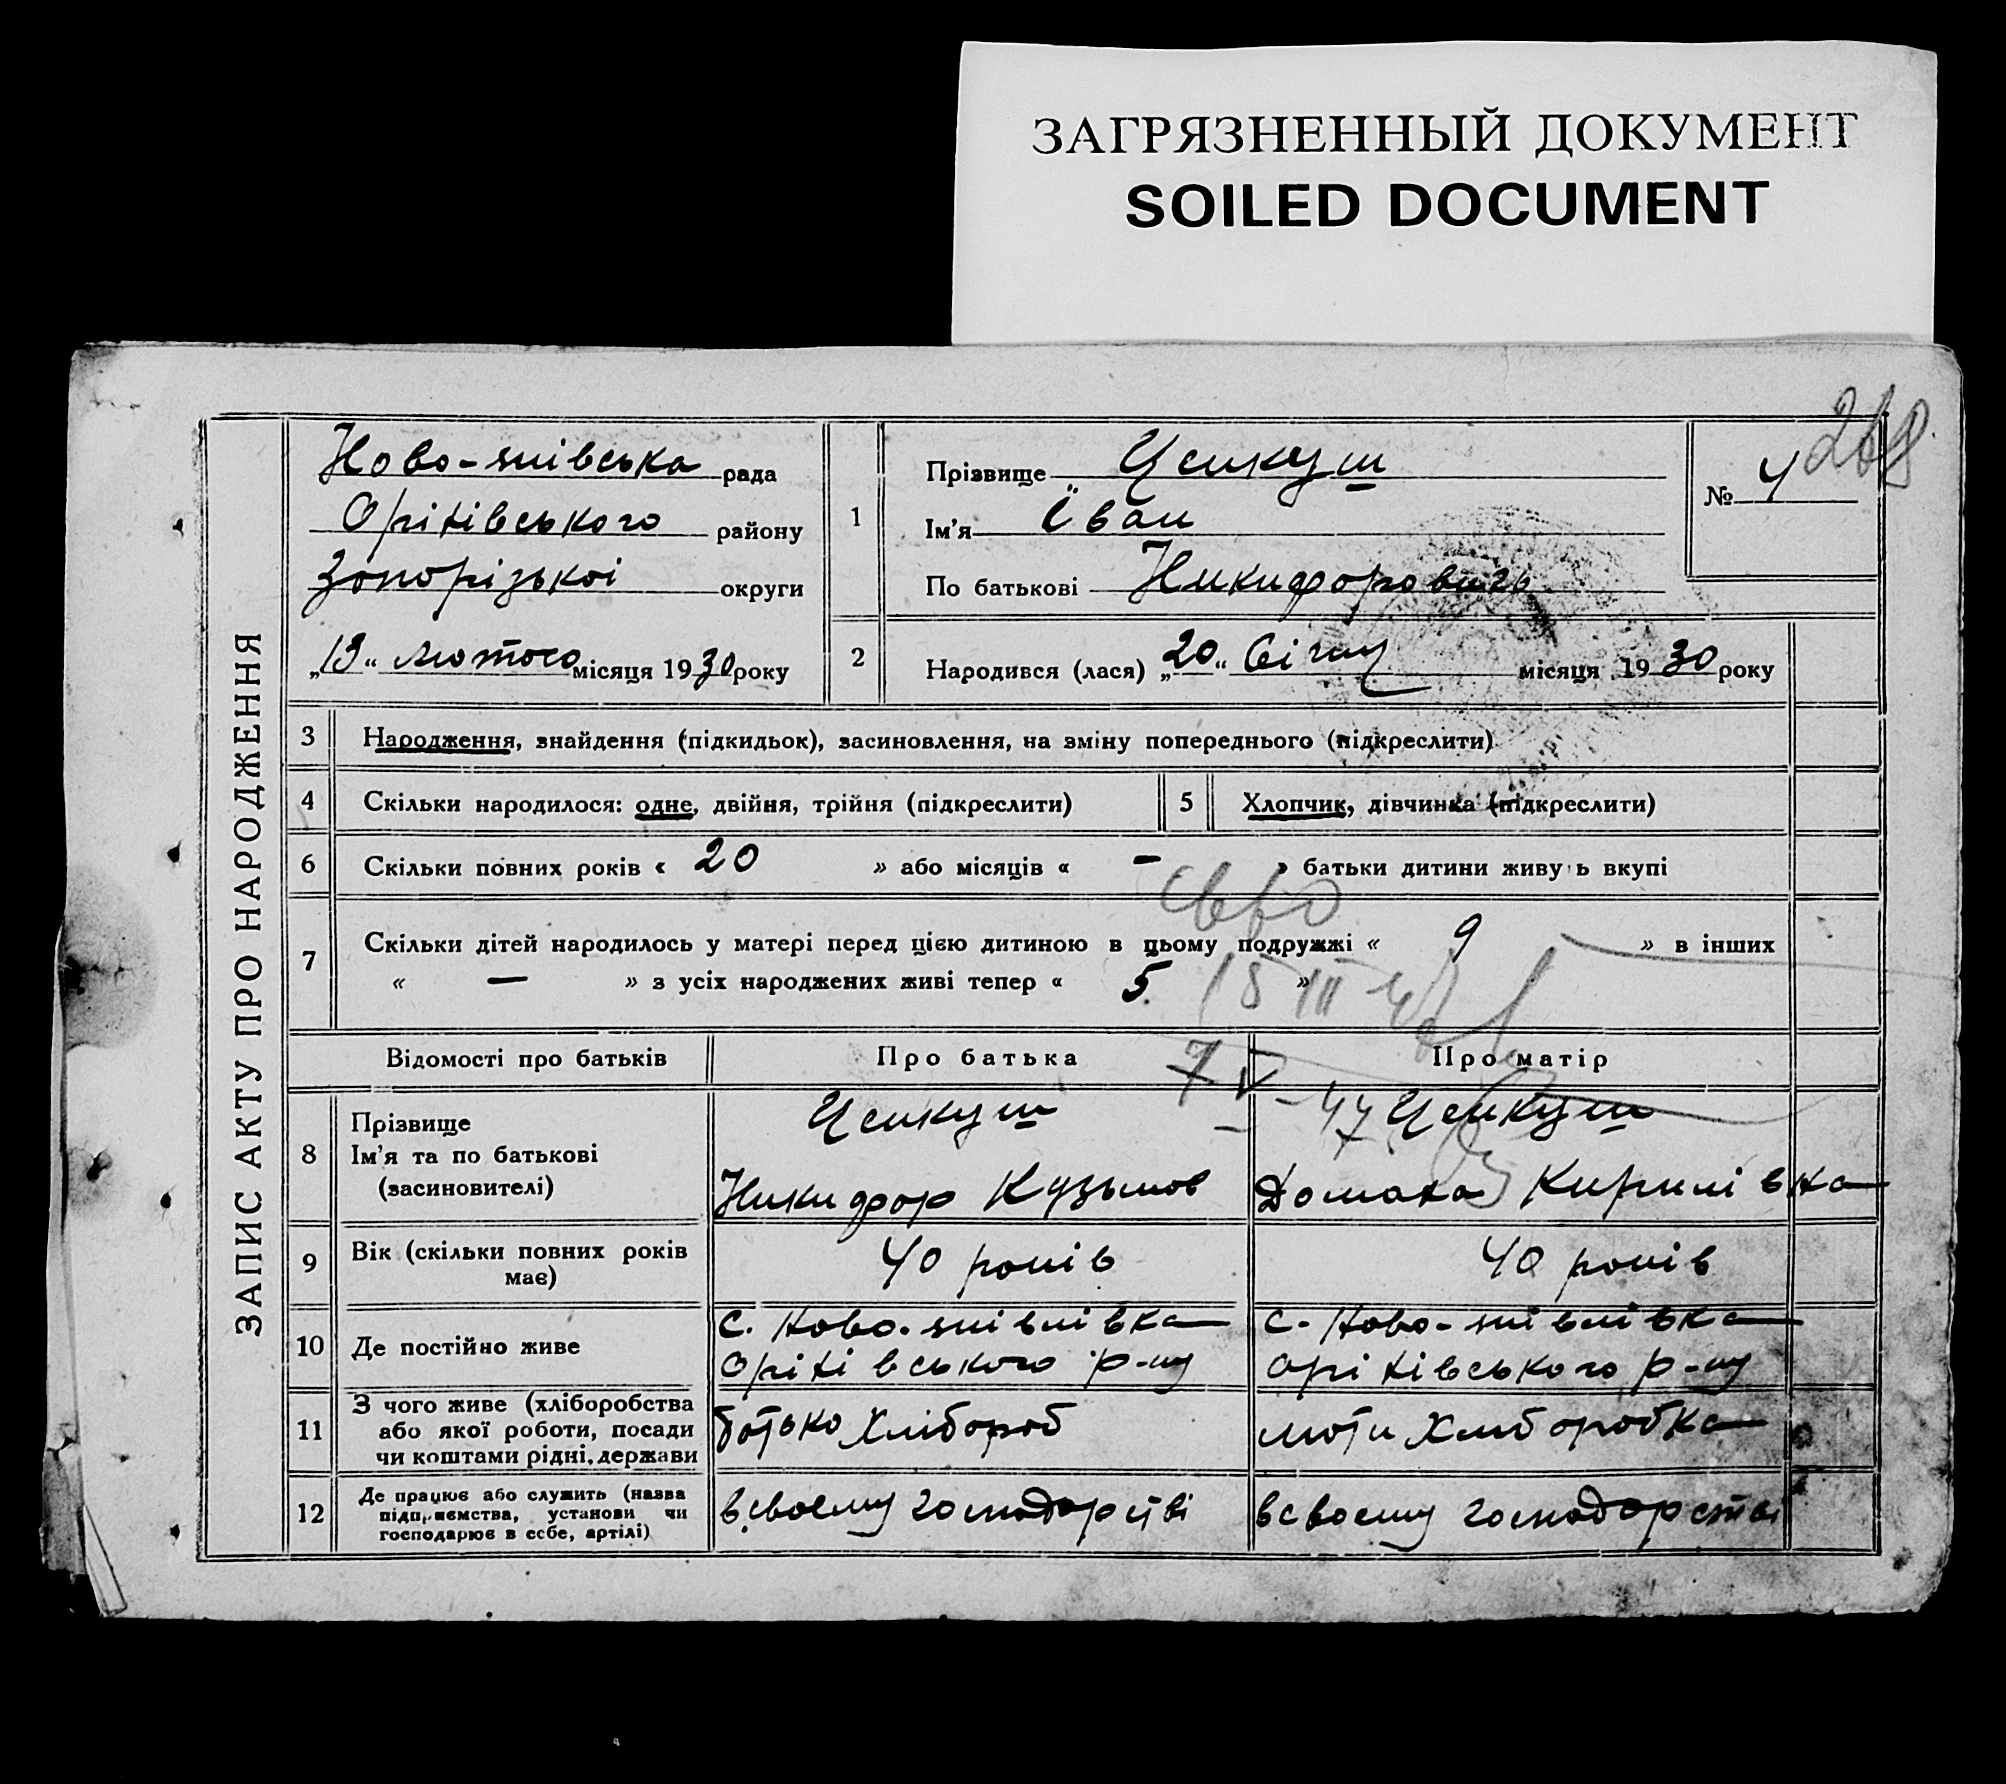 ЗАГРЯЗНЕННЫЙ ДОКУМЕНТ
SOILED DOCUMENT
268
ЗАПИС АКТУ ПРО НАРОДЖЕННЯ
рада
Оріхівського району
Запорізької округи
„13“ лютого місяця 1930 року
1
Прізвище Ценкуш
Ім'я Іван
По батькові Никифоровичь
№ 4
2
Народився (лася) „20“ Січну місяця 1930 року
3 Народження, знайдення (підкидьок), засиновлення, на зміну попереднього (підкреслити)
4 Скільки народилося: одне, двійня, трійня (підкреслити)
5 Хлопчик, дівчинка (підкреслити)
6 Скільки повних років « 20 » або місяців « – » батьки дитини живуть вкупі
7 Скільки дітей народилось у матері перед цією дитиною в цьому подружжі « 9 » в інших
« — » з усіх народжених живі тепер « 5 »
15 III
Відомості про батьків Про батька Про матір
7 V – 47
8 Прізвище
Ім'я та по батькові
(засиновителі)
Ценкуш
Никифор Кузьмов
Ценкуш
Домаха Кирилівна
9 Вік (скільки повних років
має)
40 років
40 років
10 Де постійно живе
с. Ново-
Оріхівського р-ну
с. Ново-
Оріхівського р-ну
11 З чого живе (хліборобства
або якої роботи, посади
чи коштами рідні, держави
батько Хлібороб
мати Хліборобка
12 Де працює або служить (назва
підприємства, установи чи
господарює в себе, артілі)
в своему господарстві
в своему господарстві